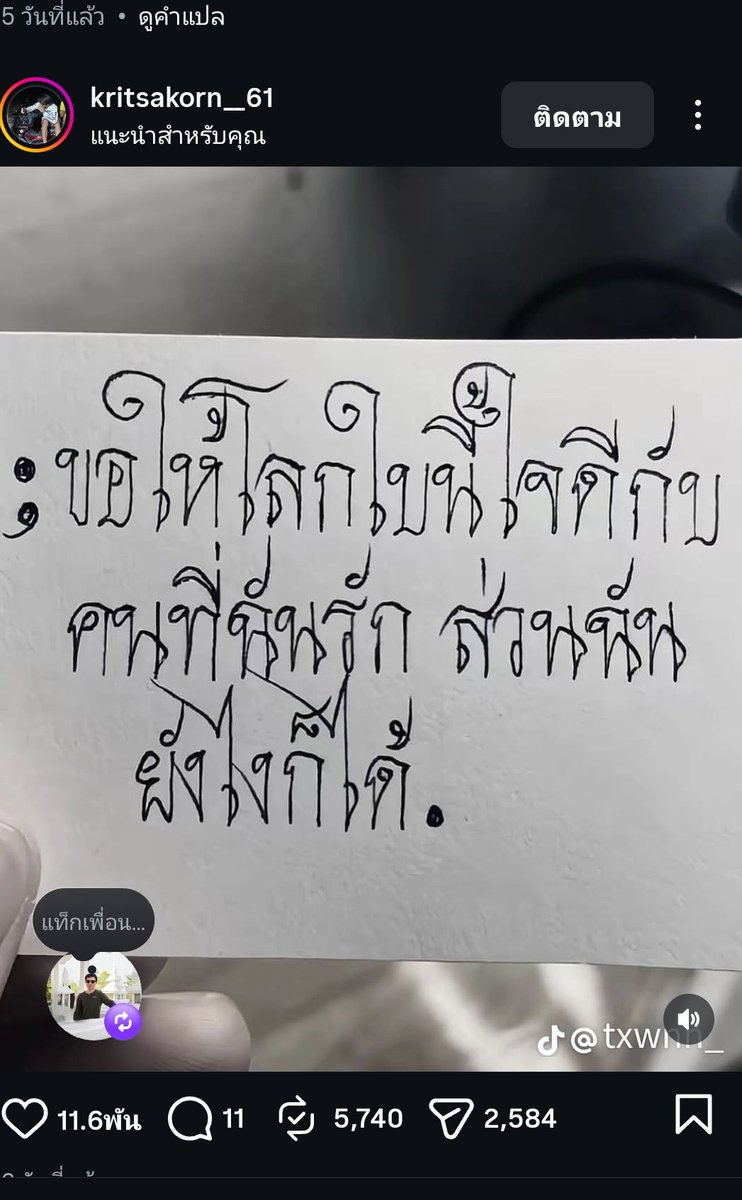 5 วันที่แล้ว • ดูคำแปล
kritsakorn__61
แนะนำสำหรับคุณ
ติดตาม
;ขอให้โลกใบนี้ใจดีกับ
คนที่ฉันรัก ส่วนฉัน
ยังไงก็ได้.
แท็กเพื่อน...
@txwnh_
11.6พัน 11 5,740 2,584